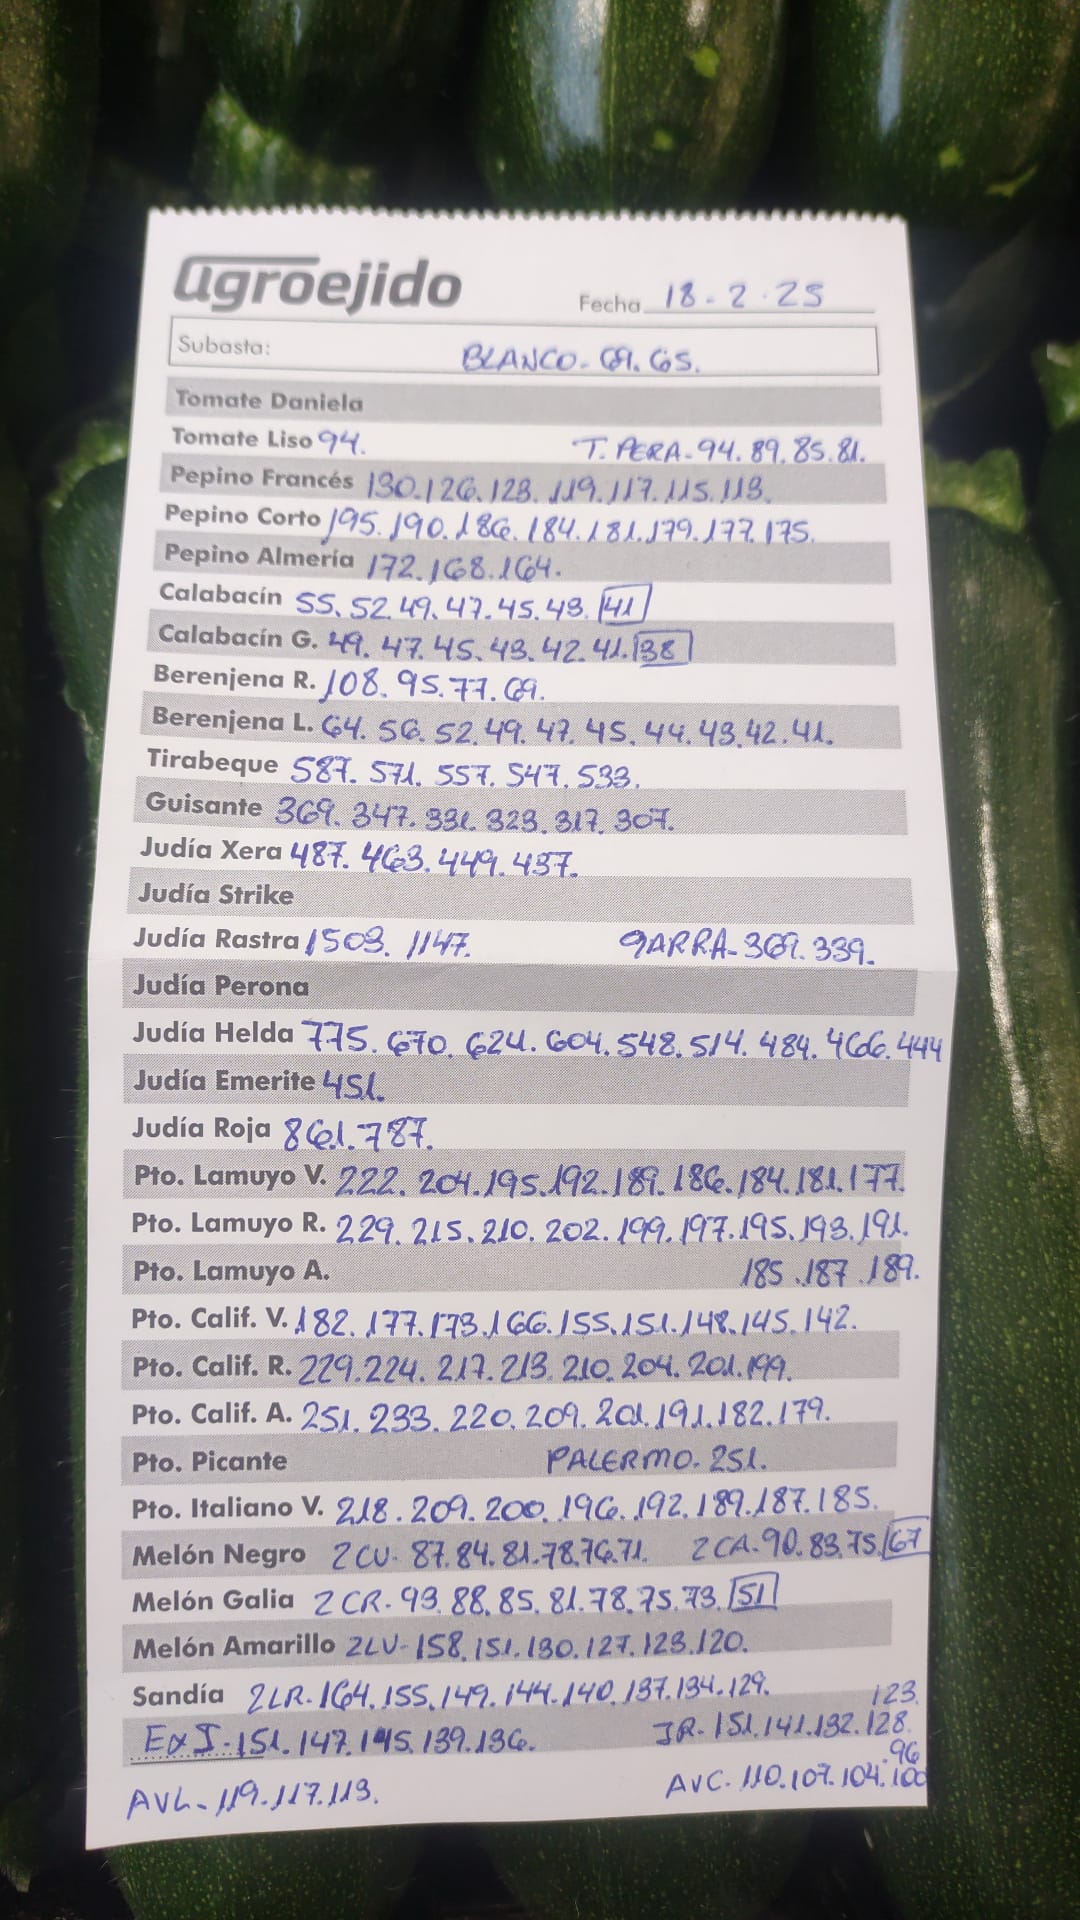 agroejido
Fecha 18-2-25
Subasta: BLANCO-69.65.
Tomate Daniela
Tomate Liso 94. T. PERA-94.89.85.81.
Pepino Francés 130.126.123.119.117.115.113.
Pepino Corto 195.190.186.184.181.179.177.175.
Pepino Almería 172.168.164.
Calabacín 55.52.49.47.45.43.41
Calabacín G. 49.47.45.43.42.41.38
Berenjena R. 108.95.77.69.
Berenjena L. 64.56.52.49.47.45.44.43.42.41.
Tirabeque 587.571.557.547.533.
Guisante 369.347.331.323.317.307.
Judía Xera 487.463.449.437.
Judía Strike
Judía Rastra 1503.1147. GARRA-369.339.
Judía Perona
Judía Helda 775.670.624.604.548.514.484.466.444
Judía Emerite 451.
Judía Roja 861.787.
Pto. Lamuyo V. 222.204.195.192.189.186.184.181.177.
Pto. Lamuyo R. 229.215.210.202.199.197.195.193.191.
Pto. Lamuyo A. 185.187.189.
Pto. Calif. V. 182.177.173.166.155.151.148.145.142.
Pto. Calif. R. 229.224.217.213.210.204.201.199.
Pto. Calif. A. 251.233.220.209.201.191.182.179.
Pto. Picante PALERMO-251.
Pto. Italiano V. 218.209.200.196.192.189.187.185.
Melón Negro 2CU-87.84.81.78.76.71. 2CA-90.83.75.67
Melón Galia 2CR-93.88.85.81.78.75.73.51
Melón Amarillo 2LV-158.151.130.127.123.120.
Sandía 2LR-164.155.149.144.140.137.134.129. 123.
ExJ-151.147.145.139.136. JR-151.141.132.128.
.96
AVL-119.117.113. AVC-110.107.104.100